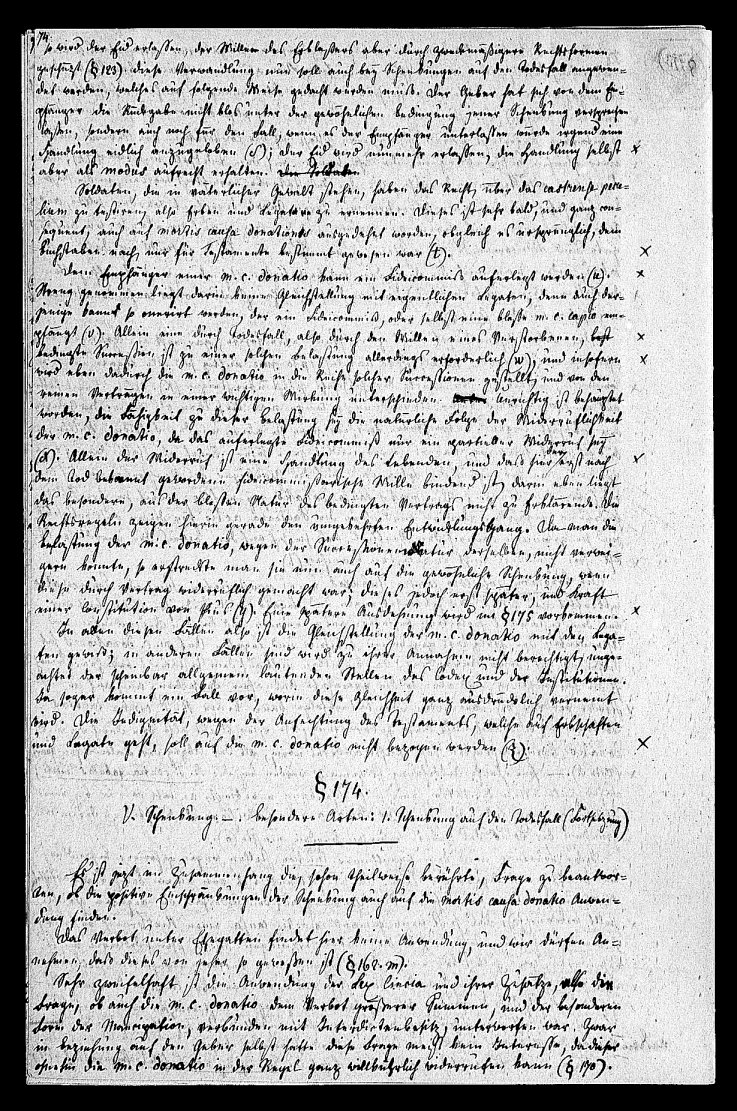 74.
so wird der Eid erlassen, der Willen des Erblassers aber durch zweckmäßigere Rechtsformen
geschützt (§ 123). Diese Verwandlung nun soll auch bey Schenkungen auf den Todesfall angewen=
det werden, welches auf folgende Weise gedacht werden muß. Der Geber hat sich von dem Em=
pfänger die Rückgabe nicht blos unter der gewöhnlichen Bedingung jener Schenkung versprechen
lassen, sondern auch noch für den Fall, wenn es der Empfänger unterlassen würde irgend eine
Handlung eidlich anzugeloben (s); der Eid wird nunmehr erlassen, die Handlung selbst
aber als modus aufrecht erhalten.
Soldaten, die in väterlicher Gewalt stehen, haben das Recht, über das castrense pecu=
lium zu testiren, also Erben und Legatare zu ernennen. Dieses ist sehr bald, und ganz con=
sequent, auch auf mortis causa donationes ausgedehnt worden, obgleich es ursprünglich, dem
Buchstaben nach, nur für Testamente bestimmt gewesen war (t).
Dem Empfänger einer m. c. donatio kann ein Fideicommiß auferlegt werden (u).
Streng genommen liegt darin keine Gleichstellung mit eigentlichen Legaten, denn auch der=
jenige kann so onerirt werden, der ein Fideicommiß, oder selbst eine bloße m. c. capio em=
pfängt (v). Allein eine durch Todesfall, also durch den Willen eines Verstorbenen,
bedingte Succession ist zu einer solchen Belastung allerdings erforderlich (w), und insofern
wird eben dadurch die m. c. donatio in die Reihe solcher Successionen gestellt, und von den
reinen Verträgen in einer wichtigen Wirkung unterschieden. Unrichtig ist behauptet
worden, die Fähigkeit zu dieser Belastung sey die natürliche Folge der Widerruflichkeit
der m. c. donatio, da das auferlegte Fideicommiß nur ein partieller Widerruf sey
(x). Allein der Widerruf ist eine Handlung des Lebenden, und daß hier der erst nach
dem Tod bekannt gewordene fideicommissarische Wille bindend ist, darin eben liegt
das besondere, aus der bloßen Natur des bedingten Vertrags nicht zu Erklärende. Die
Rechtsregeln zeigen hierin gerade den umgekehrten Entwicklungsgang. Da man die
Belastung der m. c. donatio, wegen der Successionennatur derselben, nicht verwei=
gern konnte, so erstreckte man sie nun auch auf die gewöhnliche Schenkung, wenn
diese durch Vertrag widerruflich gemacht war, dieses jedoch erst später, und kraft
einer Constitution von Pius (y). Eine spätere Ausdehnung wird im § 175 vorkommen.
In allen diesen Fällen also ist die Gleichstellung der m. c. donatio mit den Lega=
ten gewiß; in anderen Fällen sind wir zu ihrer Annahme nicht berechtigt, unge=
achtet der scheinbar allgemein lautenden Stellen des Codex und der Institutionen.
Ja sogar kommt ein Fall vor, worin diese Gleichheit ganz ausdrücklich verneint
wird. Die Indignität, wegen der Anfechtung des Testaments, welche auf Erbschaften
und Legate geht, soll auf die m. c. donatio nicht bezogen werden (z).
§ 174.
V. Schenkung. — . besondere Arten: 1. Schenkung auf den Todesfall (Fortsetzung)
Es ist jetzt im Zusammenhang die, schon theilweise berührte, Frage zu beantwor=
ten, ob die positive Einschränkungen der Schenkung auch auf die mortis causa donatio Anwen=
dung finden.
Das Verbot unter Ehegatten findet hier keine Anwendung, und wir dürfen An=
nehmen, daß dieses von jeher so gewesen ist (§ 162. m).
Sehr zweifelhaft ist die Anwendung der Lex Cincia und ihrer Zusätze, also die
Frage, ob auch die m. c. donatio dem Verbot größerer Summen, und der besonderen
Form der Mancipation, verbunden mit Interdictenbesitz, unterworfen war. Zwar
in Beziehung auf den Geber selbst hatte diese Frage meist kein Interesse, da dieser
ohnehin die m. c. donatio in der Regel ganz willkührlich widerrufen kann (§ 170).